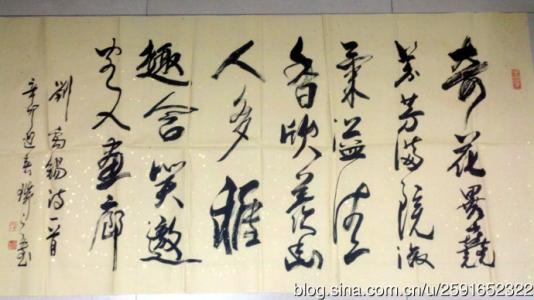 奇花異
芳滿院淑
氣溢清
香欣羨幽
人多雅
趣含笑邀
君入畫廊
劉禹錫詩一首
辛卯迎春
blog.sina.com.cn/u/2591652322